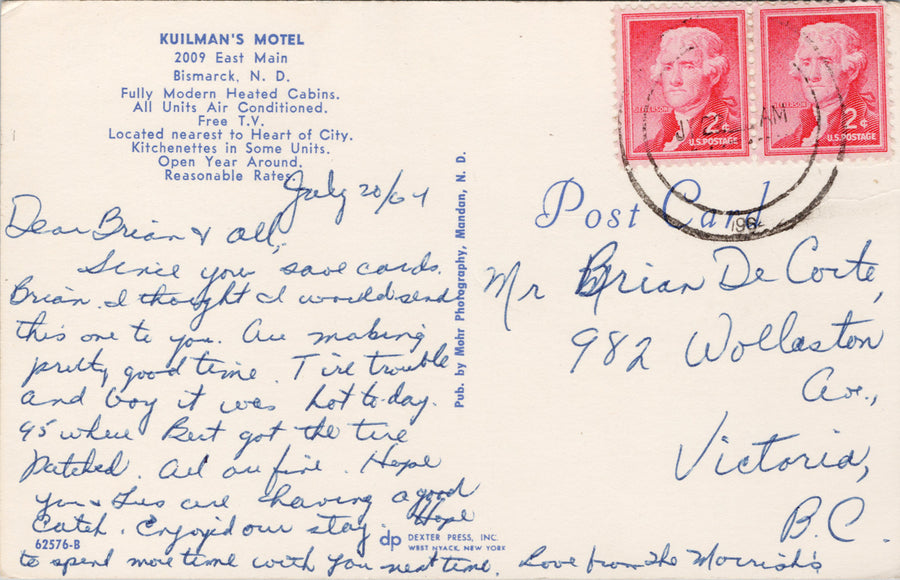 KUILMAN'S MOTEL
2009 East Main
Bismarck, N. D.
Fully Modern Heated Cabins.
All Units Air Conditioned.
Free T.V.
Located nearest to Heart of City.
Kitchenettes in Some Units.
Open Year Around.
Reasonable Rates.
July 20/64
Dear Brian & all,
Since you save cards.
Brian. I thought I would send
this one to you. Are making
pretty good time. Tire trouble
and boy it was hot to-day.
95 where Bert got the tire
patched. All are fine. Hope
you & Gus are having a good
catch. Enjoyed our stay. Hope
to spend more time with you next time. Love from the Morrish's
62576-B
dp DEXTER PRESS, INC.
WEST NYACK, NEW YORK
Pub. by Mohr Photography, Mandan, N. D.
JEFFERSON
2¢
U.S. POSTAGE
JEFFERSON
2¢
U.S. POSTAGE
AM
196
Post Card
Mr Brian De Corte,
982 Wollaston
Ave.,
Victoria,
B.C.